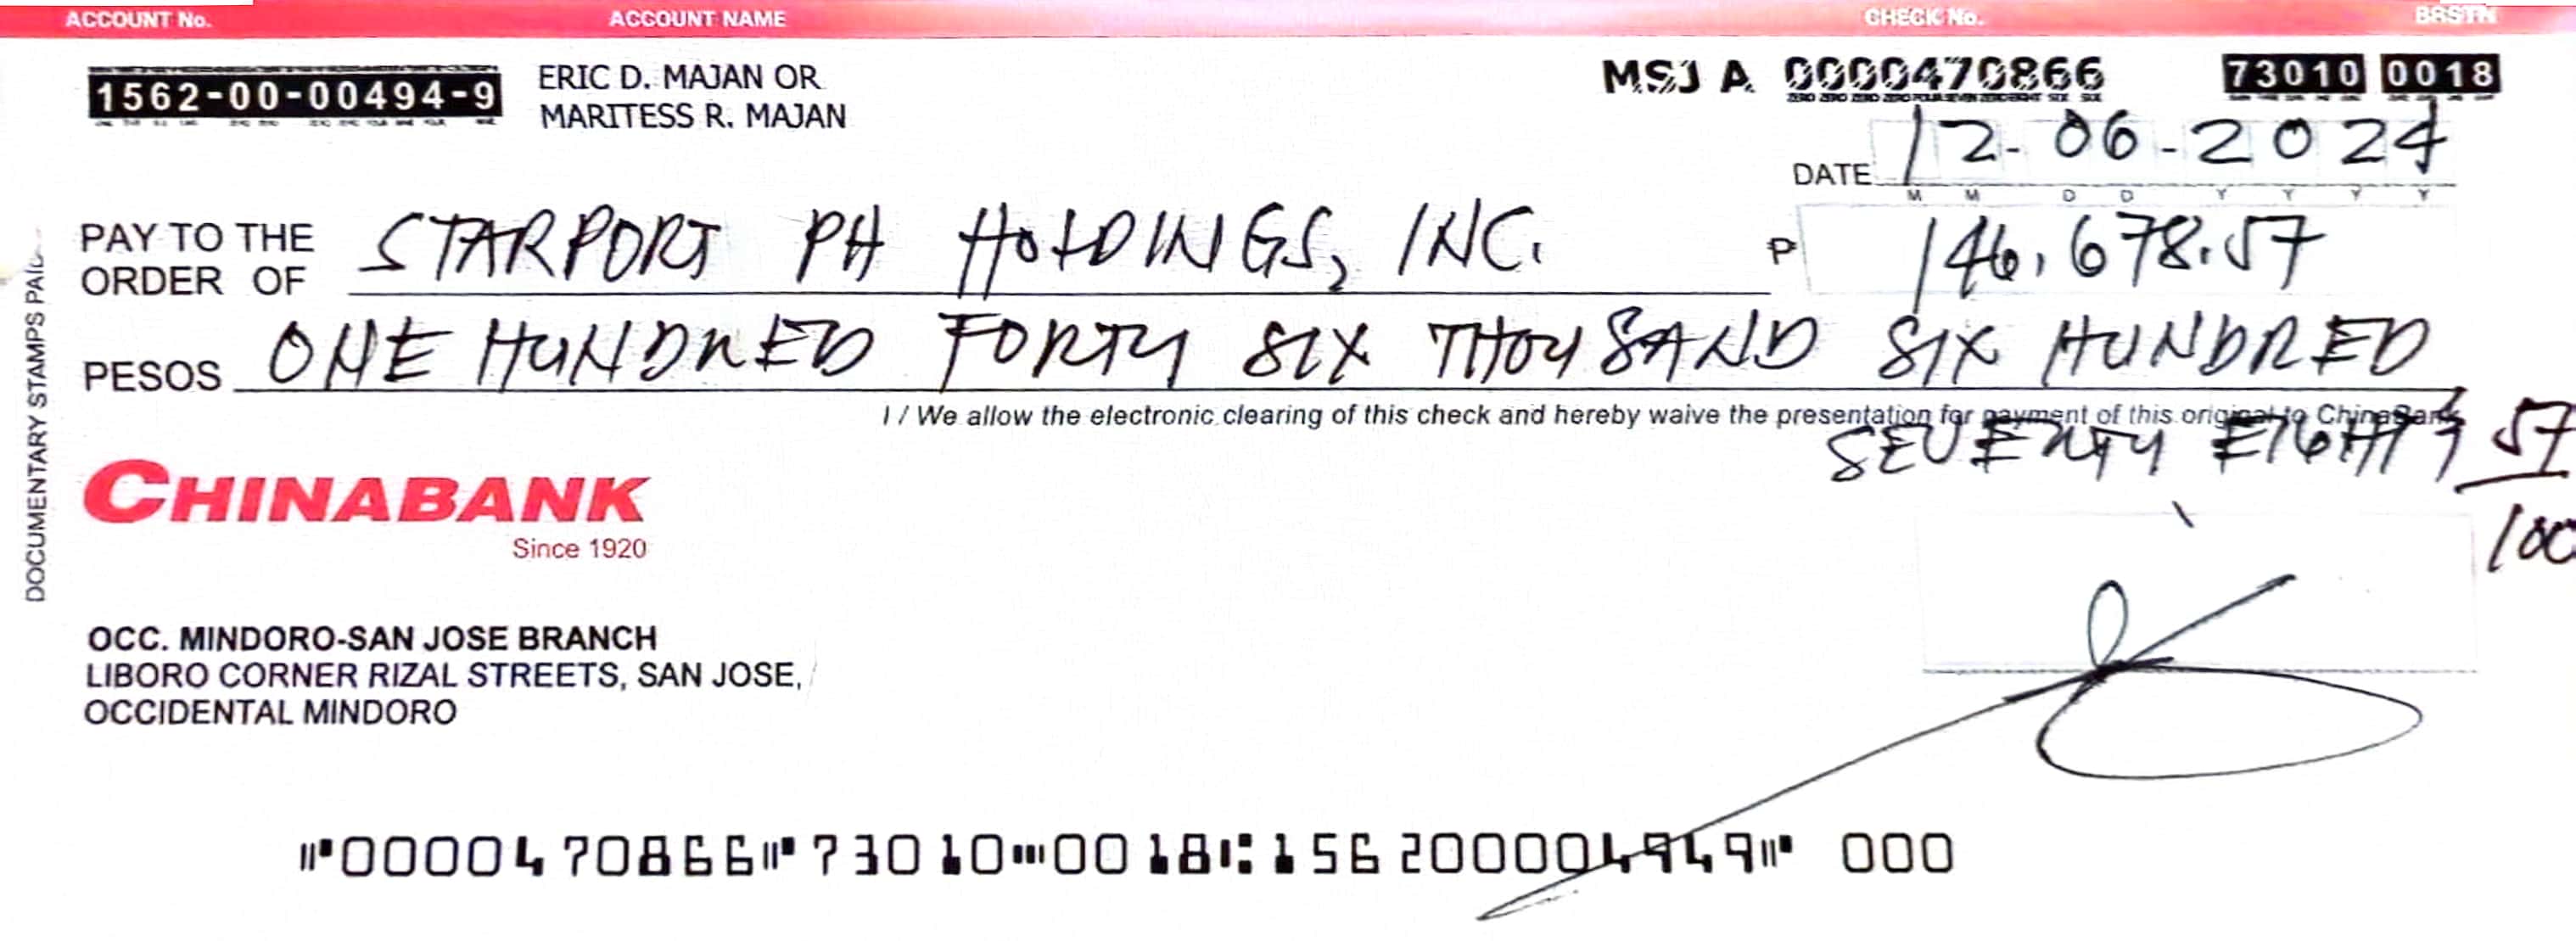 ACCOUNT No. ACCOUNT NAME CHECK No. BRSTN
1562-00-00494-9 ERIC D. MAJAN OR MSJ A 0000470866 73010 0018
MARITESS R. MAJAN
DATE 12-06-2024
M M D D Y Y Y Y
PAY TO THE ORDER OF STARPORT PH HOLDINGS, INC. P 146,678.57
PESOS ONE HUNDRED FORTY SIX THOUSAND SIX HUNDRED
I / We allow the electronic clearing of this check and hereby waive the presentation for payment of this original to ChinaBank
SEVENTY EIGHT & 57/100
DOCUMENTARY STAMPS PAID
CHINABANK
Since 1920
OCC. MINDORO-SAN JOSE BRANCH
LIBORO CORNER RIZAL STREETS, SAN JOSE,
OCCIDENTAL MINDORO
⑈0000470866⑈73010⑉0018⑆156200004949⑈ 000